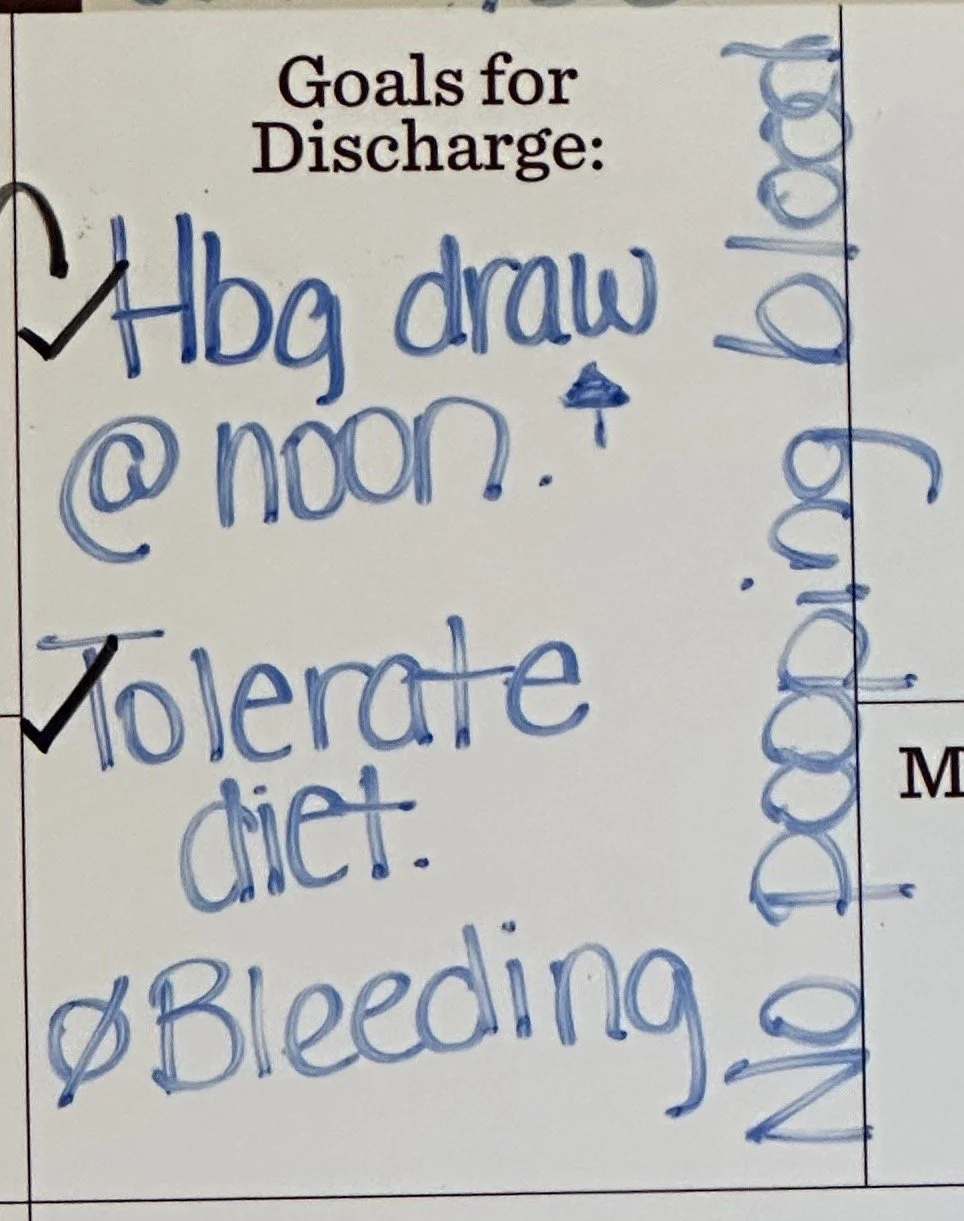 Goals for
Discharge:
✓Hbg draw
@noon. ↑
✓Tolerate
diet.
ØBleeding
No pooping blood
M